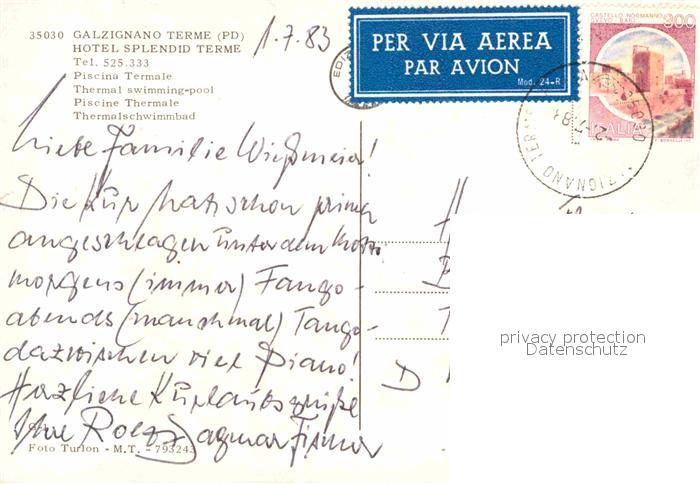 35030 GALZIGNANO TERME (PD)
HOTEL SPLENDID TERME
Tel. 525.333
Piscina Termale
Thermal swimming-pool
Piscine Thermale
Thermalschwimmbad
1.7.83
PER VIA AEREA
PAR AVION
Mod. 24-R
CASTELLO NORMANNO
SVEVO BARI
300
ITALIA
Liebe Familie
Die Kur hat schon prima
angeschlagen unter dem Motto:
morgens (immer) Fango-
abends (manchmal) Tango-
dazwischen viel Piano!
Herzliche Kurlaubsgrüße
Ihre Dagmar
Foto Turlon - M.T. - 793243
D
privacy protection
Datenschutz